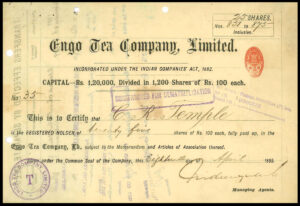 25 SHARES.
Nos 851 to 875
Inclusive.
Engo Tea Company, Limited.
INCORPORATED UNDER THE INDIAN COMPANIES' ACT, 1882.
CAPITAL—Rs. 1,20,000, Divided in 1,200 Shares of Rs. 100 each.
No. 35
This is to Certify that C. R. Temple
is the REGISTERED HOLDER of twenty five shares of Rs. 100 each, fully paid up, in the
Engo Tea Company, Ld. subject to the Memorandum and Articles of Association thereof.
Given under the Common Seal of the Company, this day of April 189
Managing Agents.
T